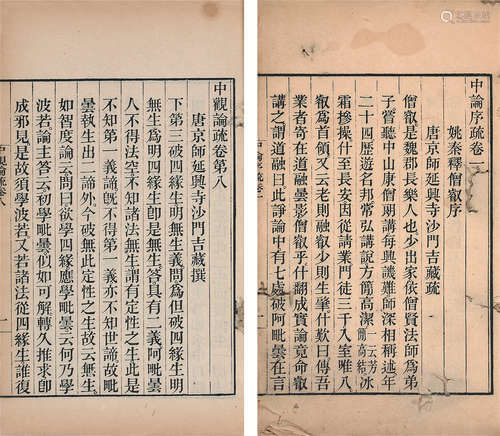 中論序疏卷一
姚秦釋僧叡序
唐京師延興寺沙門吉藏疏
僧叡是魏郡長樂人也少出家依僧賢法師為弟
子嘗聽中山康僧朗講每與譏難師深相稱述年
二十四歷遊名邦常弘講說方簡高潔一云芳冰
霜摻操什至長安因從請業門徒三千入室唯八
叡為首領又云老則融叡少則生肇什歎曰傳吾
業者寄在道融曇影僧叡乎什翻成實論竟命叡
講之謂道融曰此諍論中有七處破阿毗曇在言
中論疏卷一
一
中觀論疏卷第八
唐京師延興寺沙門吉藏撰
下第三破四緣生明無生義問為但破四緣生明
無生為明四緣生卽是無生答具有二義阿毗曇
人不得法空不知諸法無生謂有定性之生此是
不知第一義諦旣不得第一義亦不知世諦故毗
曇執生出二諦外今破無此定性之生故云無生
如智度論云問曰欲學四緣應學毗曇云何乃學
波若論主答云初學毗曇似如可解轉久推求卽
成邪見是故須學波若又若諸法從四緣生誰復
中觀論疏卷八
一